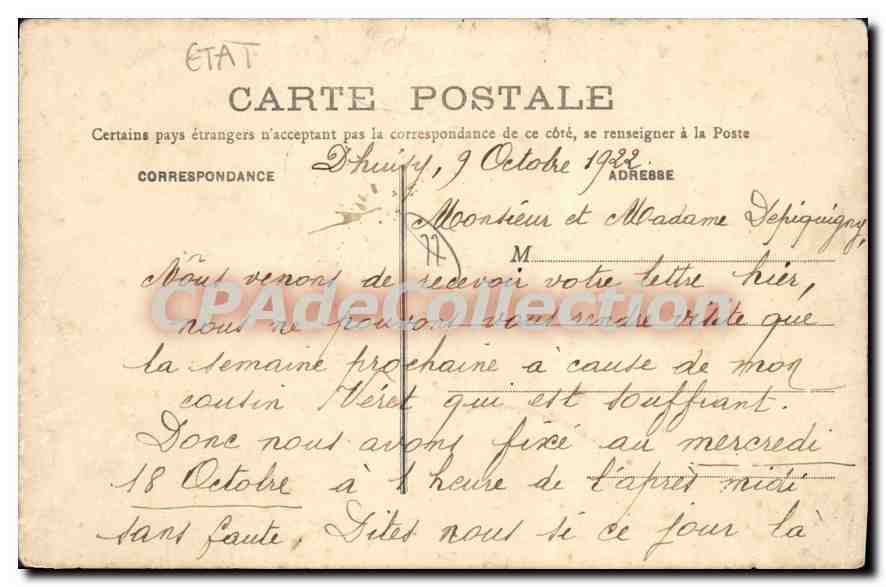 ETAT
CARTE POSTALE
Certains pays étrangers n'acceptant pas la correspondance de ce côté, se renseigner à la Poste
CORRESPONDANCE
ADRESSE
Dhuisy, 9 Octobre 1922.
Monsieur et Madame Depiquigny,
77
M
Nous venons de recevoir votre lettre hier,
CPAdeCollection
nous ne pouvons vous rendre visite que
la semaine prochaine à cause de mon
cousin Véret qui est souffrant.
Donc nous avons fixé au mercredi
18 Octobre à 1 heure de l'après midi
sans faute. Dites nous si ce jour là